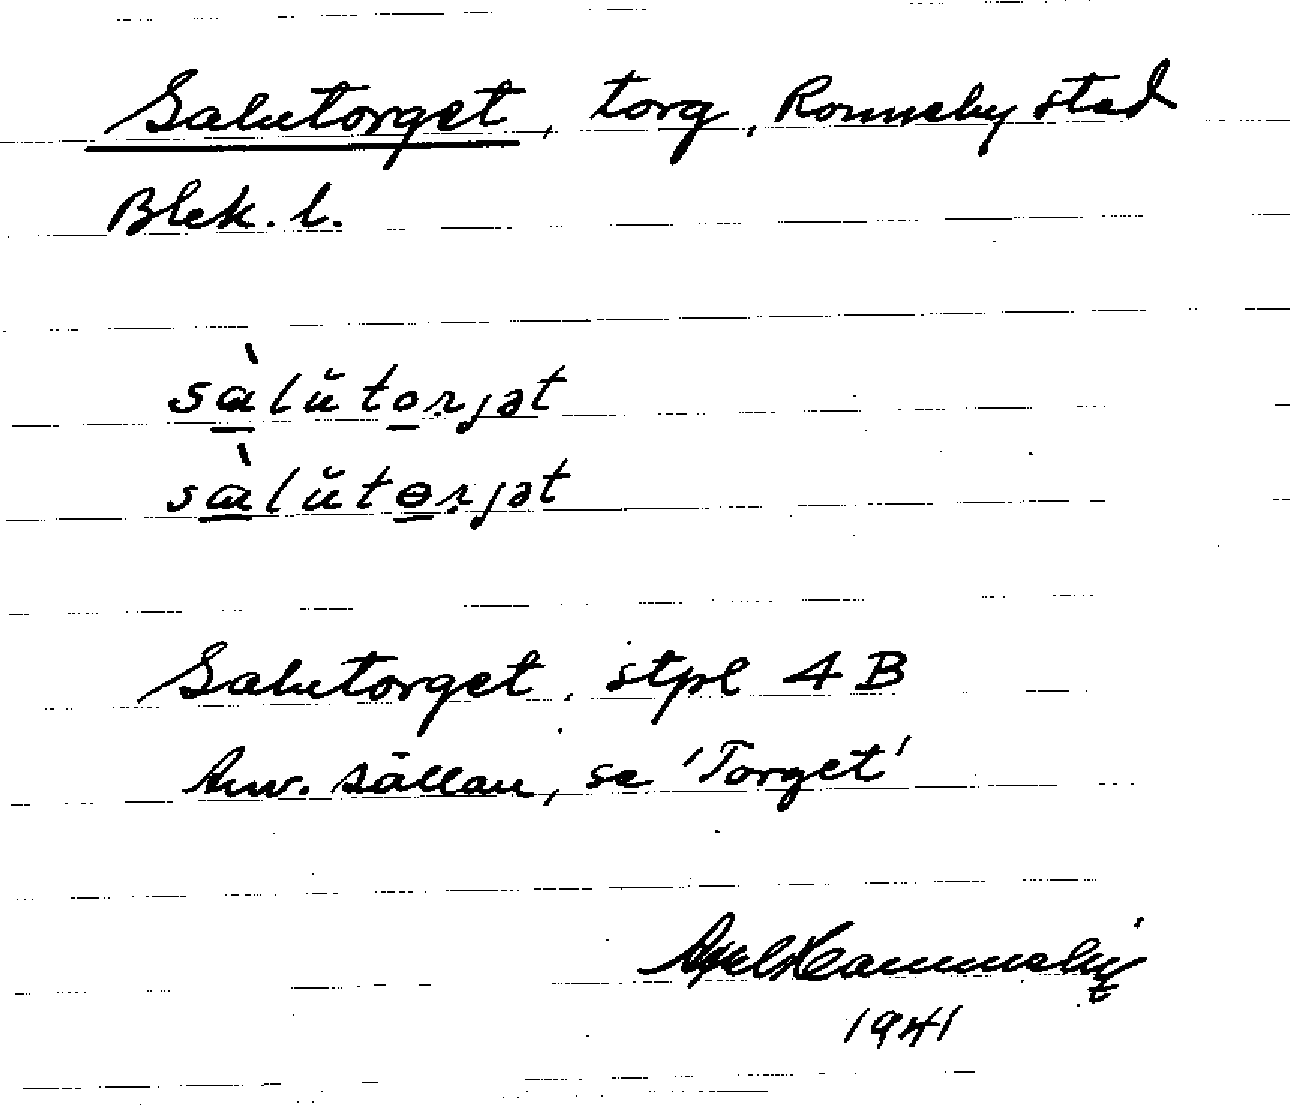 Salutorget, torg, Ronneby stad
Blek. l.
sàlŭtorjət
sàlŭtɵrjət
Salutorget, stpl 4 B
Anv. sällan, se 'Torget'
Axel
1941